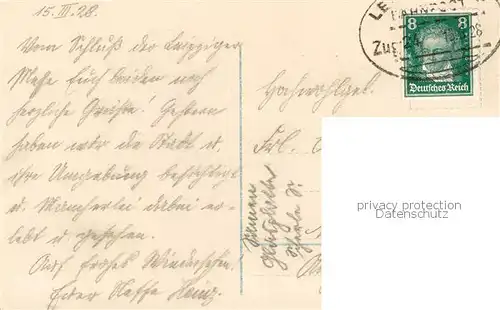 15. III. 28.
Vom Schluß der Leipziger
Messe Euch beiden noch
herzliche Grüße! Gestern
haben wir die Stadt u.
ihre Umgebung besichtigt
u. Mancherlei dabei er-
lebt u. gesehen.
Auf frohes Wiedersehen.
Euer Neffe Heinz.
LE
BAHNPOST
Zug
8 8
Deutsches Reich
Hochwohlgeb.
Frl.
privacy protection
Datenschutz